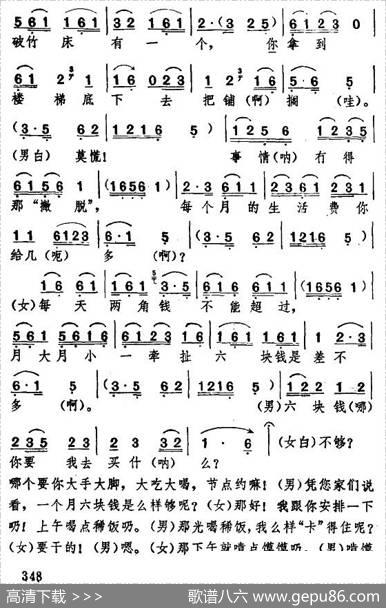 5 6 1 1 6 1 | 3 2 1 6 1 | 2·(3 2 5) | 6 1 2 3 0
破竹床有一个，你拿到
6 1 2 3 1 | 1 6 0 2 3 | 1 2 1 6 | 5·6 5
楼梯底下去把铺(啊)搁(哇)。
(3·5 6 2 | 1 2 1 6 5) | 1 2 5 6 | 1 2 3 5
(男白)莫慌！事情(呐)冇得
6 1 5 6 1 | (1 6 5 6 1) | 2·3 6 1 1 | 2 3 6 1 2 3 1
那“撇脱”，每个月的生活费你
1 1 6 1 2 3 | 6·1 5 | (3·5 6 2 | 1 2 1 6 5)
给几(呃)多(啊)？
1 6 6 1 | 1 6 1 3·5 | 6 1 6 6 1 1 | (1 6 5 6 1)
(女)每天两角钱不能超过，
5 6 1 5 6 1 6 | 5 6 1 6 1 | 1 6 1 1 6 1 | 1 2·3
月大月小一牵扯六块钱是差不
6·1 5 | (3·5 6 2 | 1 2 1 6 5) | 1 2 2 1·2
多(啊)。(男)六块钱(哪)
2 3 5 2 3 | 2 3 3 2 | 1· 6
(女白)不够？
你要我去买什(呐)么？
哪个要你大手大脚，大吃大喝，节点约嘛！(男)凭您家们说
看，一个月六块钱是么样够呢？(女)那好！我跟你安排一下
叻！上午喝点稀饭叻。(男)那光喝稀饭，我么样“卡”得住呢？
(女)要干的！(男)嗯。(女)那下午就
348
高清下载
歌谱八六 www.gepu86.com